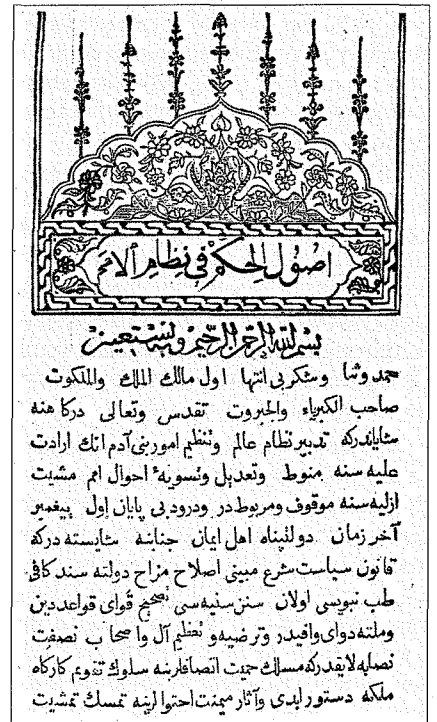 اصول الحكم فى نظام الامم
بسم الله الرحمن الرحيم وبه نستعين
حمد وثنا وشكر بى انتها اول مالك الملك والملكوت
صاحب الكبرياء والجبروت تقدس وتعالى دركاهنه
شاياندركه تدبير نظام عالم وتنظيم امور بنى آدم انك ارادت
عليه سنه منوط وتعديل وتسويۀ احوال امم مشيت
ازليه سنه موقوف ومربوطدر ودرود بى پايان اول پيغمبر
آخر زمان دولتپناه اهل ايمان جنابنه شايسته دركه
قانون سياست شرع مبينى اصلاح مزاج دولته سند كافى
طب نبويسى اولان سنن سنيه سى تصحيح قواى قواعد دين
وملته دواى وافيدر وترضيه و تعظيم آل واصحاب نصفت
نصابه لايقدركه مسلك حميت اتصافلرينه سلوك تقويم كاركاه
ملكه دستور ابدى وآثار ميمنت احتوالرينه تمسك تمشيت